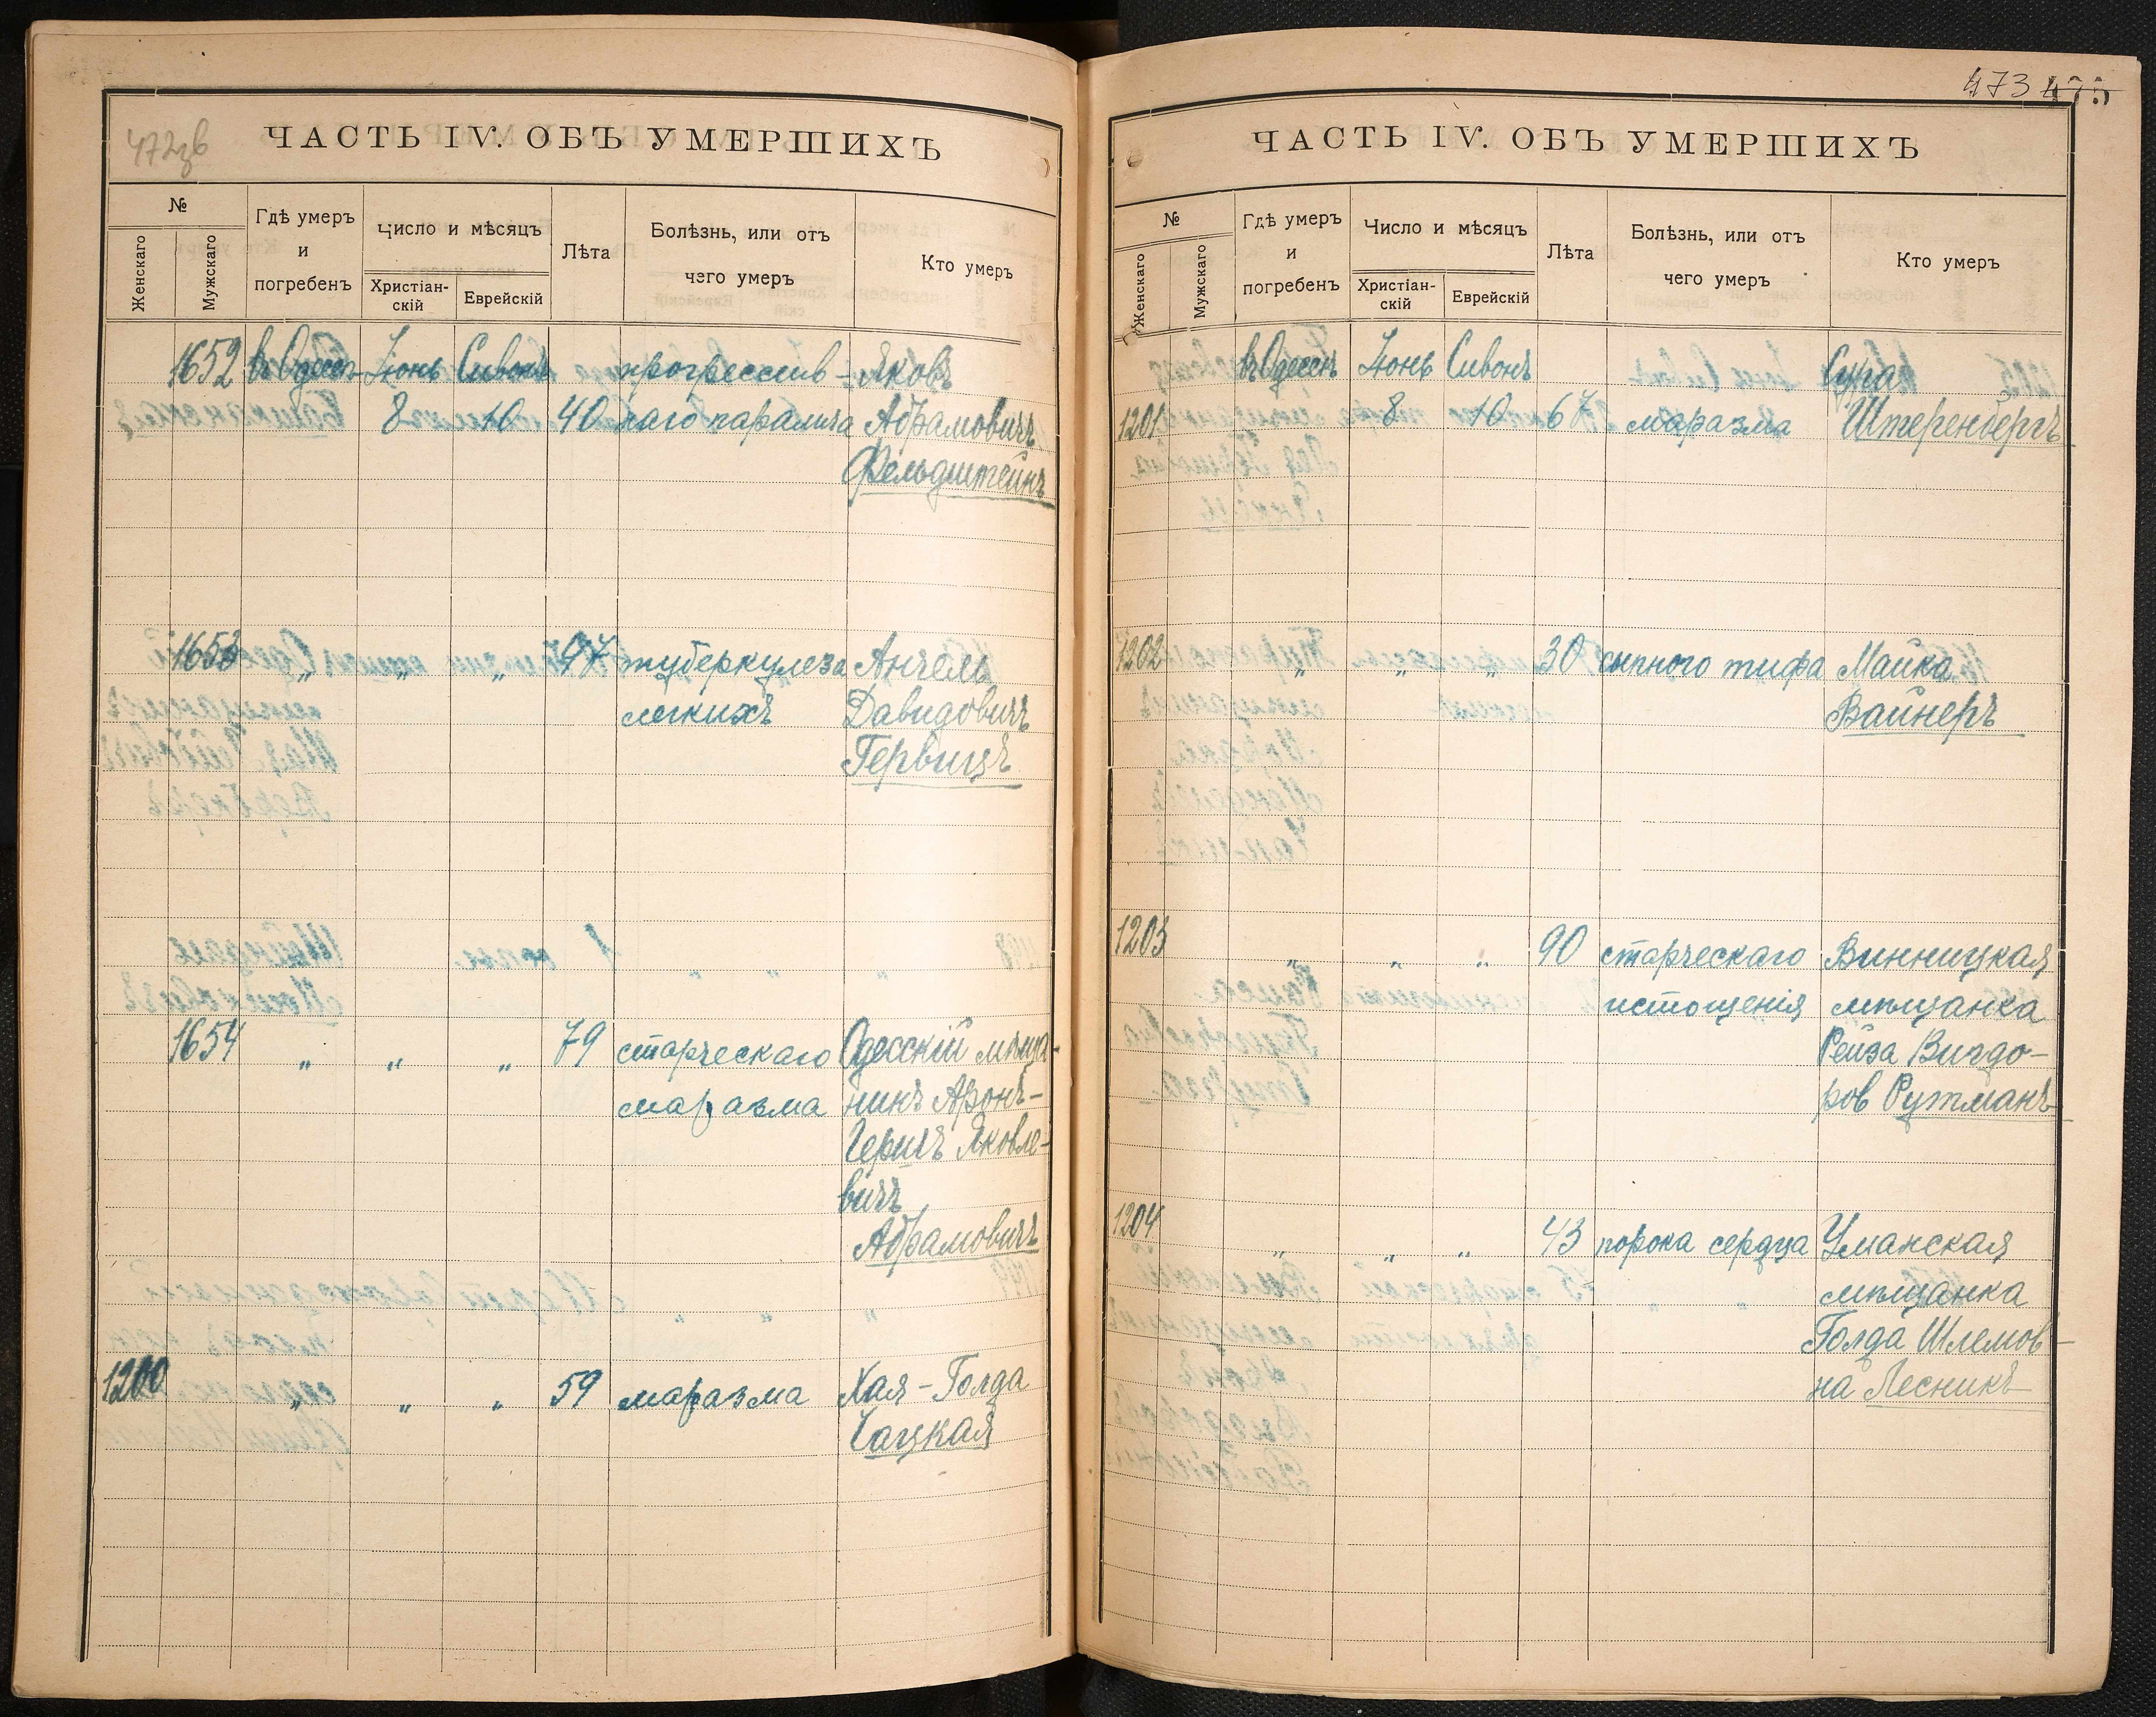 472зв
ЧАСТЬ IV. ОБЪ УМЕРШИХЪ
№
Женскаго
Мужскаго
Гдѣ умеръ
и
погребенъ
Число и мѣсяцъ
Христіан-
скій
Еврейскій
Лѣта
Болѣзнь, или отъ
чего умеръ
Кто умеръ
1652 въ Одессѣ Іюнь Сивонъ прогрессив- Яковъ
8 10 40 наго паралича Абрамовичъ
Фельдштейнъ
1653 „ „ „ 47 туберкулеза Анчель
легкихъ Давидовичъ
Гервицъ
1654 „ „ „ 79 старческаго Одесскій мѣща-
маразма нинъ Аронъ-
Гершъ Яковле-
вичъ
Абрамовичъ
1200 „ „ „ 59 маразма Хая-Голда
Чацкая
473 475
ЧАСТЬ IV. ОБЪ УМЕРШИХЪ
№
Женскаго
Мужскаго
Гдѣ умеръ
и
погребенъ
Число и мѣсяцъ
Христіан-
скій
Еврейскій
Лѣта
Болѣзнь, или отъ
чего умеръ
Кто умеръ
въ Одессѣ Іюнь Сивонъ Сура
1201 8 10 67 маразма Штеренбергъ
1202 „ „ „ 30 сыпного тифа Майка
Вайнеръ
1203 „ „ „ 90 старческаго Винницкая
истощенія мѣщанка
Рейза Вигдо-
ров Рутманъ
1204 „ „ „ 43 порока сердца Уманская
мѣщанка
Голда Шлемов-
на Лесникъ